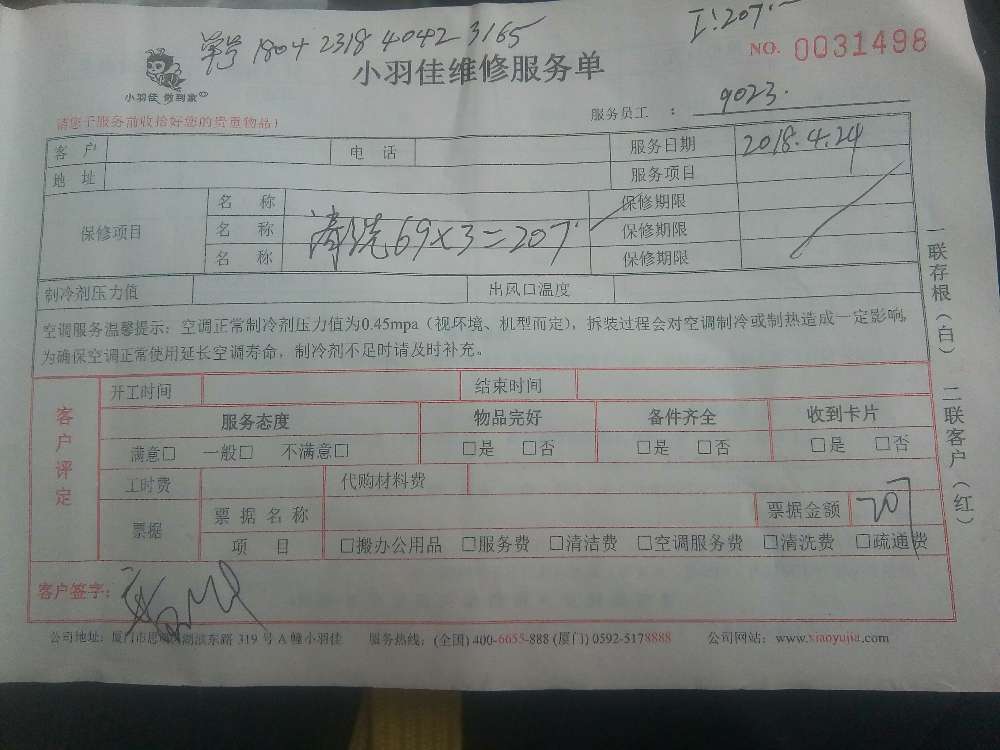 单号 1804 2318 4042 3165
I:207.-
小羽佳 做到家
小羽佳维修服务单
NO. 0031498
请您于服务前收拾好您的贵重物品!
服务员工 : 9023.
客 户 电 话 服务日期 2018.4.24
地 址 服务项目
保修项目
名 称 保修期限
名 称 清洗 69×3=207. 保修期限
名 称 保修期限
制冷剂压力值 出风口温度
空调服务温馨提示：空调正常制冷剂压力值为0.45mpa（视环境、机型而定），拆装过程会对空调制冷或制热造成一定影响,
为确保空调正常使用延长空调寿命，制冷剂不足时请及时补充。
客户评定
开工时间 结束时间
服务态度 物品完好 备件齐全 收到卡片
满意□ 一般□ 不满意□ □是 □否 □是 □否 □是 □否
工时费 代购材料费
票据
票 据 名 称 票据金额 207
项 目 □搬办公用品 □服务费 □清洁费 □空调服务费 □清洗费 □疏通费
客户签字：
公司地址：厦门市思明 湖滨东路 319 号 A 幢小羽佳 服务热线：(全国) 400-6655-888 (厦门) 0592-5178888 公司网站：www.xiaoyujia.com
一联存根（白） 二联客户（红）